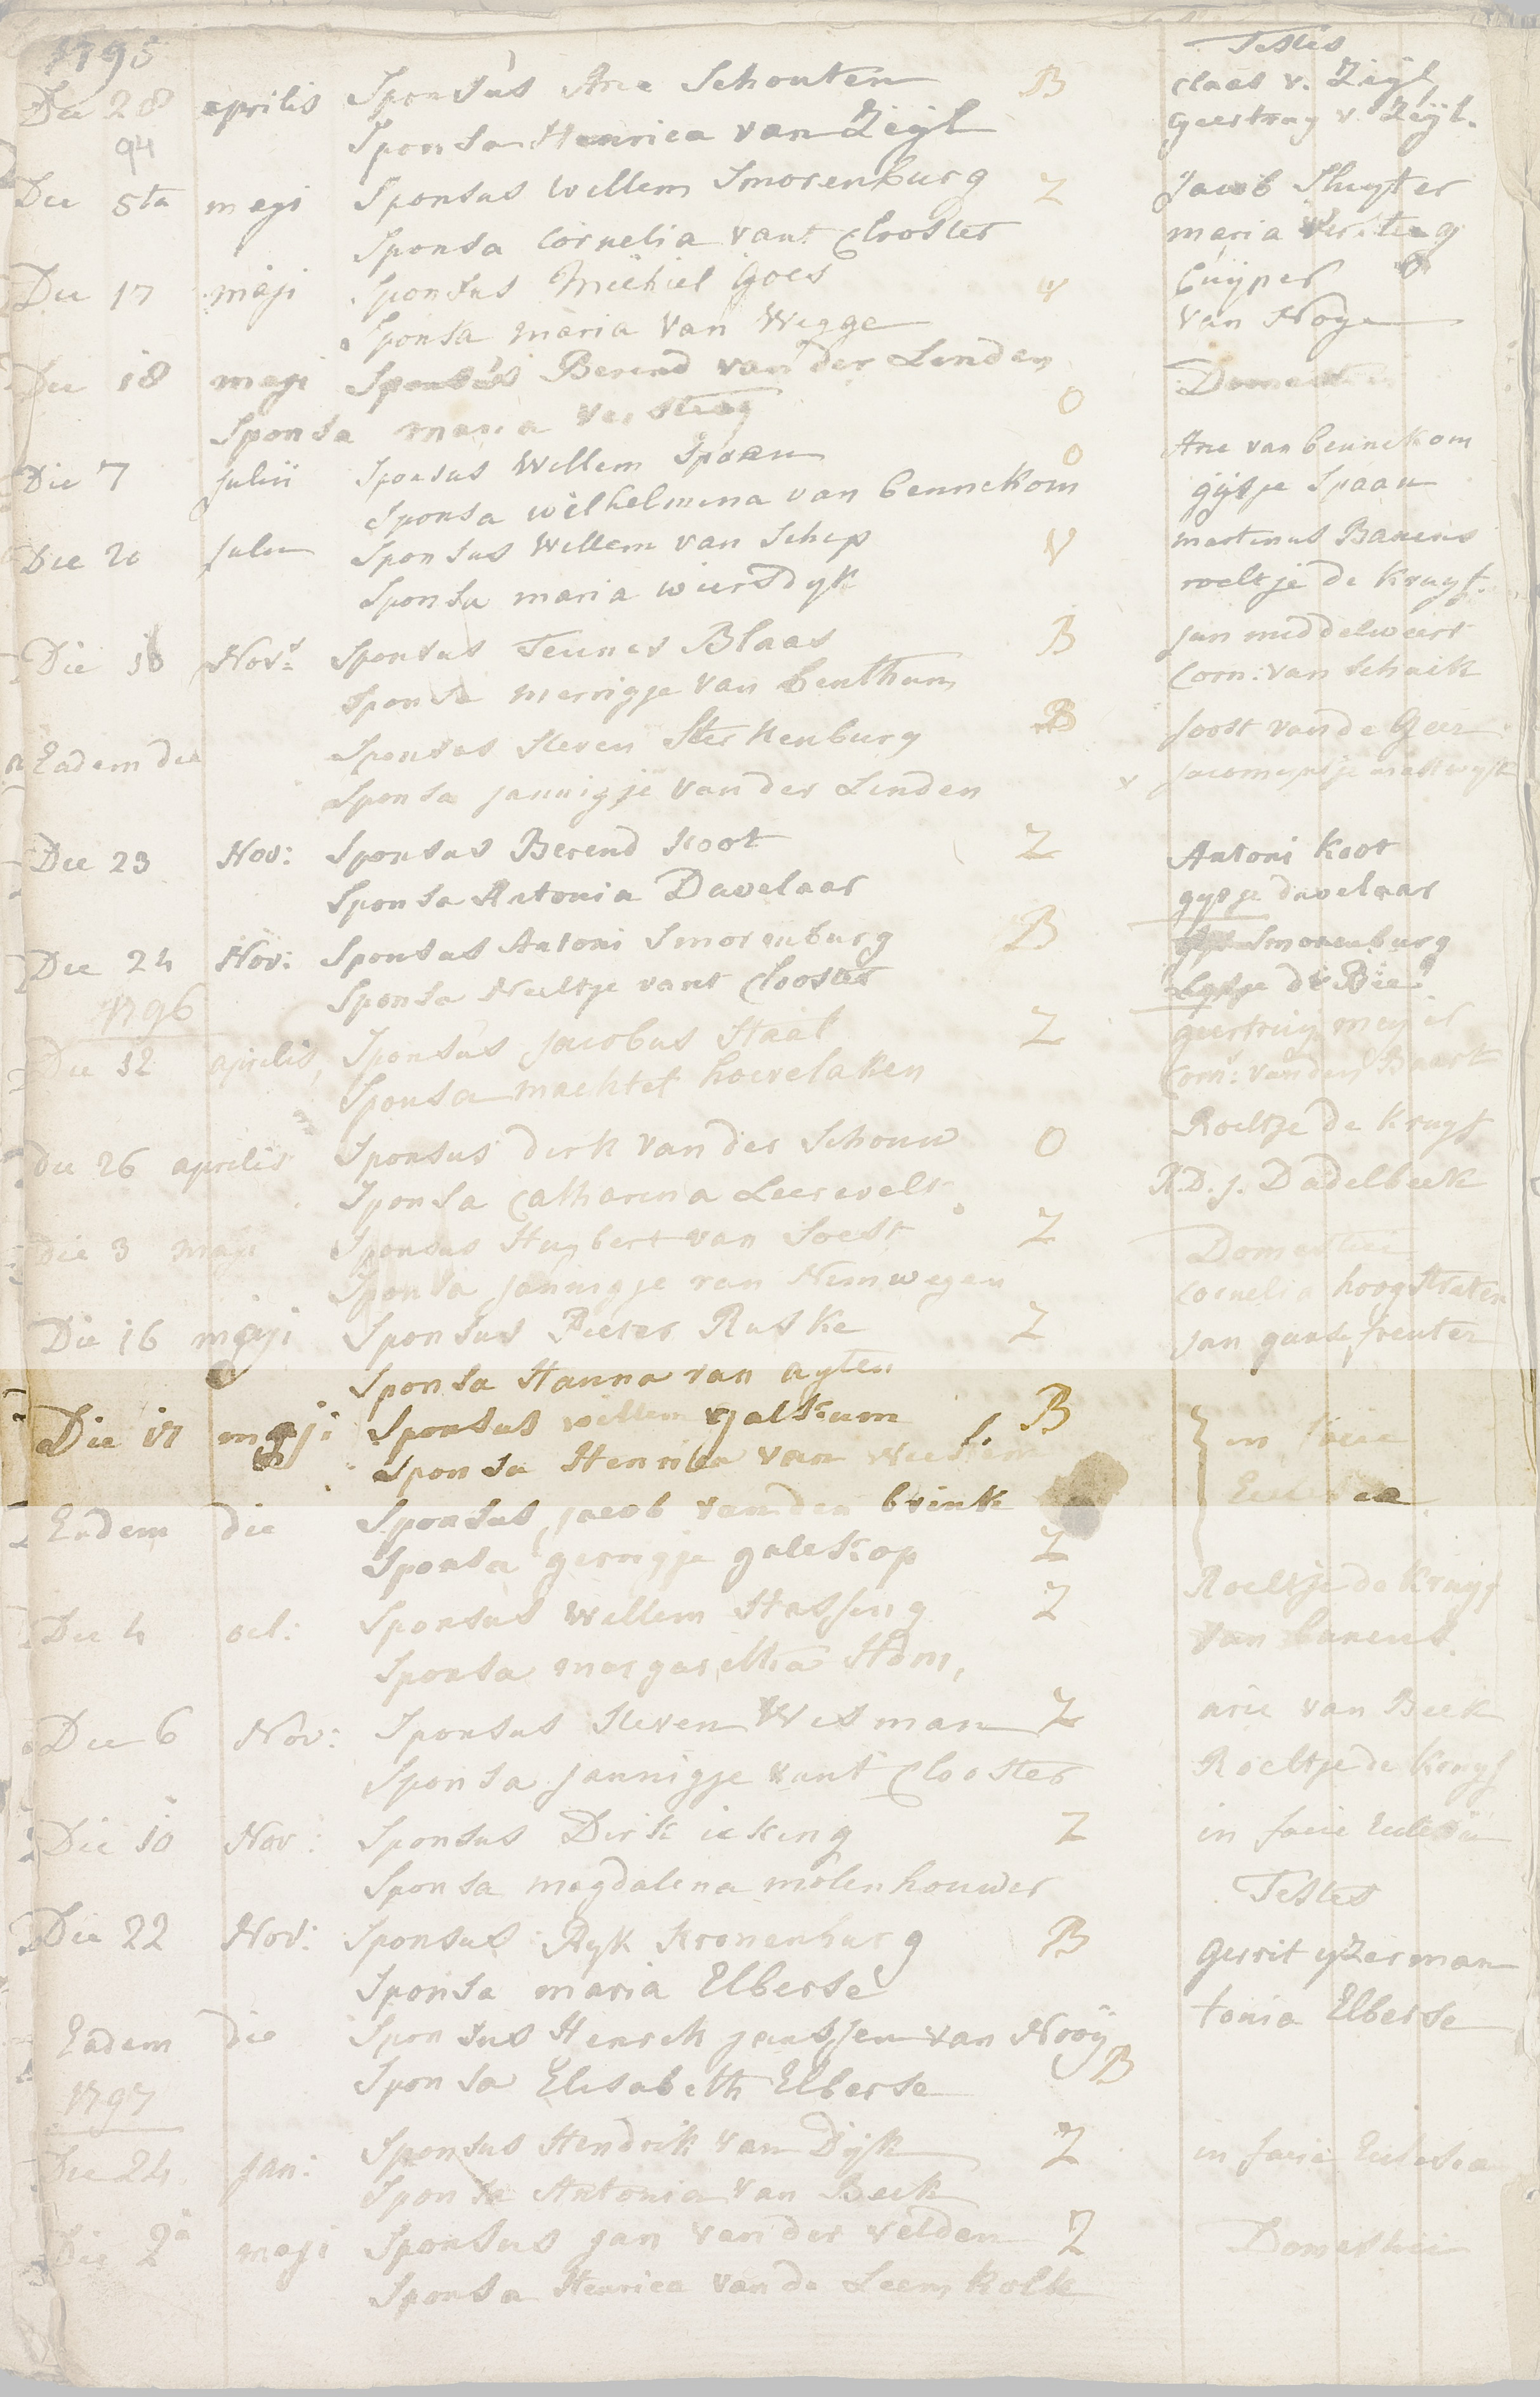 1795
Testes
Die 28 aprilis Sponsus Arie Schouten B Claas v. Zijl
94 Sponsa Henrica van Zeijl Geertruy v. Zeijl.
Die 5ta maji Sponsus Willem Smorenburg Z Jacob Sluyter
Sponsa Cornelia vant Clooster maria Versteeg
Die 17 maji Sponsus Michiel Goes Cuijper
Sponsa maria van Wegge van Noye
Die 18 maji Sponsus Berend van der Linden Domestici
Sponsa maria Versteeg O
Die 7 Julii Sponsus Willem Spaan O Arie van bennekom
Sponsa wilhelmina van bennekom gijsje Spaan
Die 20 Julii Sponsus Willem van Schip V martinus Barens
Sponsa maria wiersdyk roeltje de Kruyf.
Die 10 Nov: Sponsus Teunes Blaas B Jan middelweert
Sponsa merrigje van benthum Corn: van Schaik
Eadem die Sponsus Steven Sterkenburg B Joost van de Geer
Sponsa jannigje van der Linden
Die 23 Nov: Sponsus Berend Koot Z Antoni Koot
Sponsa Antonia Davelaar gysje davelaar
Die 24 Nov: Sponsus Antoni Smorenburg B Smorenburg
Sponsa Neeltje vant Clooster de Bie
1796
Die 12 aprilis Sponsus jacobus Staal Z geertruij meyer
Sponsa machtel hoevelaken Corn: van den Baart
die 26 aprilis Sponsus dirk van der Schouw O Roeltje de Kruyf
Sponsa Catharina Leerevelt R.D.J. Dadelbeek
Die 3 maji Sponsus Huybert van Soest Z Domestici
Sponsa jannigje van Nimwegen Cornelia hoogstraten
Die 16 maji Sponsus Pieter Ruske Z Jan
Sponsa Hanna van ayten
Die 17 maji Sponsus willem galkum B in facie
Sponsa Henrica van Ecclesia
Eadem die Sponsus jacob van den brink
Sponsa gerrigje galeskop Z
Die 4 oct: Sponsus Willem Stassing Z Roeltje de Kruyf
Sponsa margaretha Hom, van barens
Die 6 Nov: Sponsus Steven Wesman Z arie van Beek
Sponsa jannigje vant Clooster Roeltje de Kruyf
Die 10 Nov: Sponsus Dirk icking Z in facie Ecclesiae
Sponsa magdalena molenhouwer Testes
Die 22 Nov: Sponsus Ryk Kronenburg B Gerrit yzerman
Sponsa maria Elberse tonia Elberse
Eadem die Sponsus Henrik janssen van Nooij
Sponsa Elisabeth Elberse B
1797
Die 24 Jan: Sponsus Hendrik van Dijk Z in facie Ecclesia
Sponsa Antonia van Beek
Die 2a maji Sponsus jan van der velden Z Domestici
Sponsa Henrica van de Leemkolk